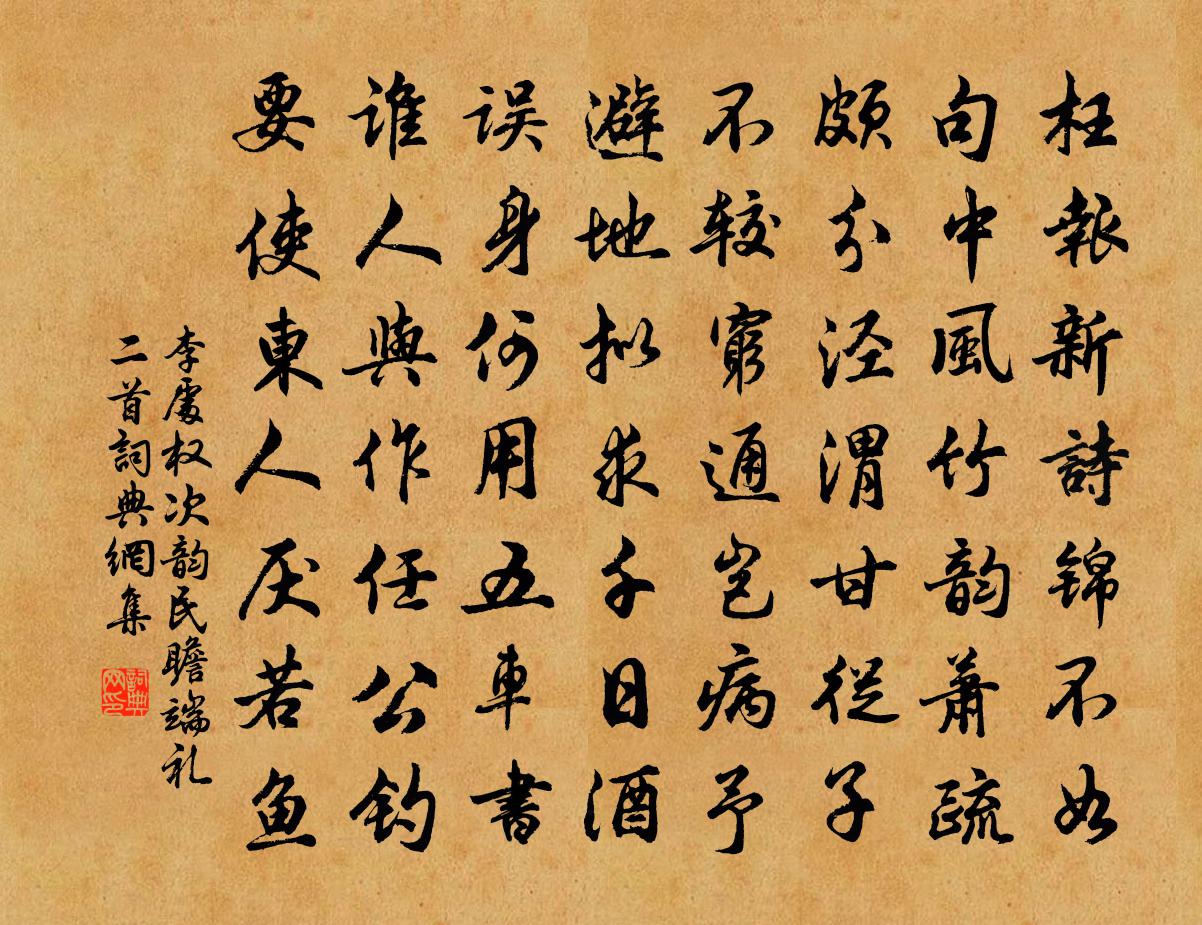 枉報新詩錦不如
句中風竹韵蕭疏
頗分涇渭甘從子
不較窮通豈病予
避地拟求千日酒
误身何用五車書
谁人與作任公钓
要使東人厌若魚
李處权次韵民瞻端礼
二首詞典網集
詞典网印